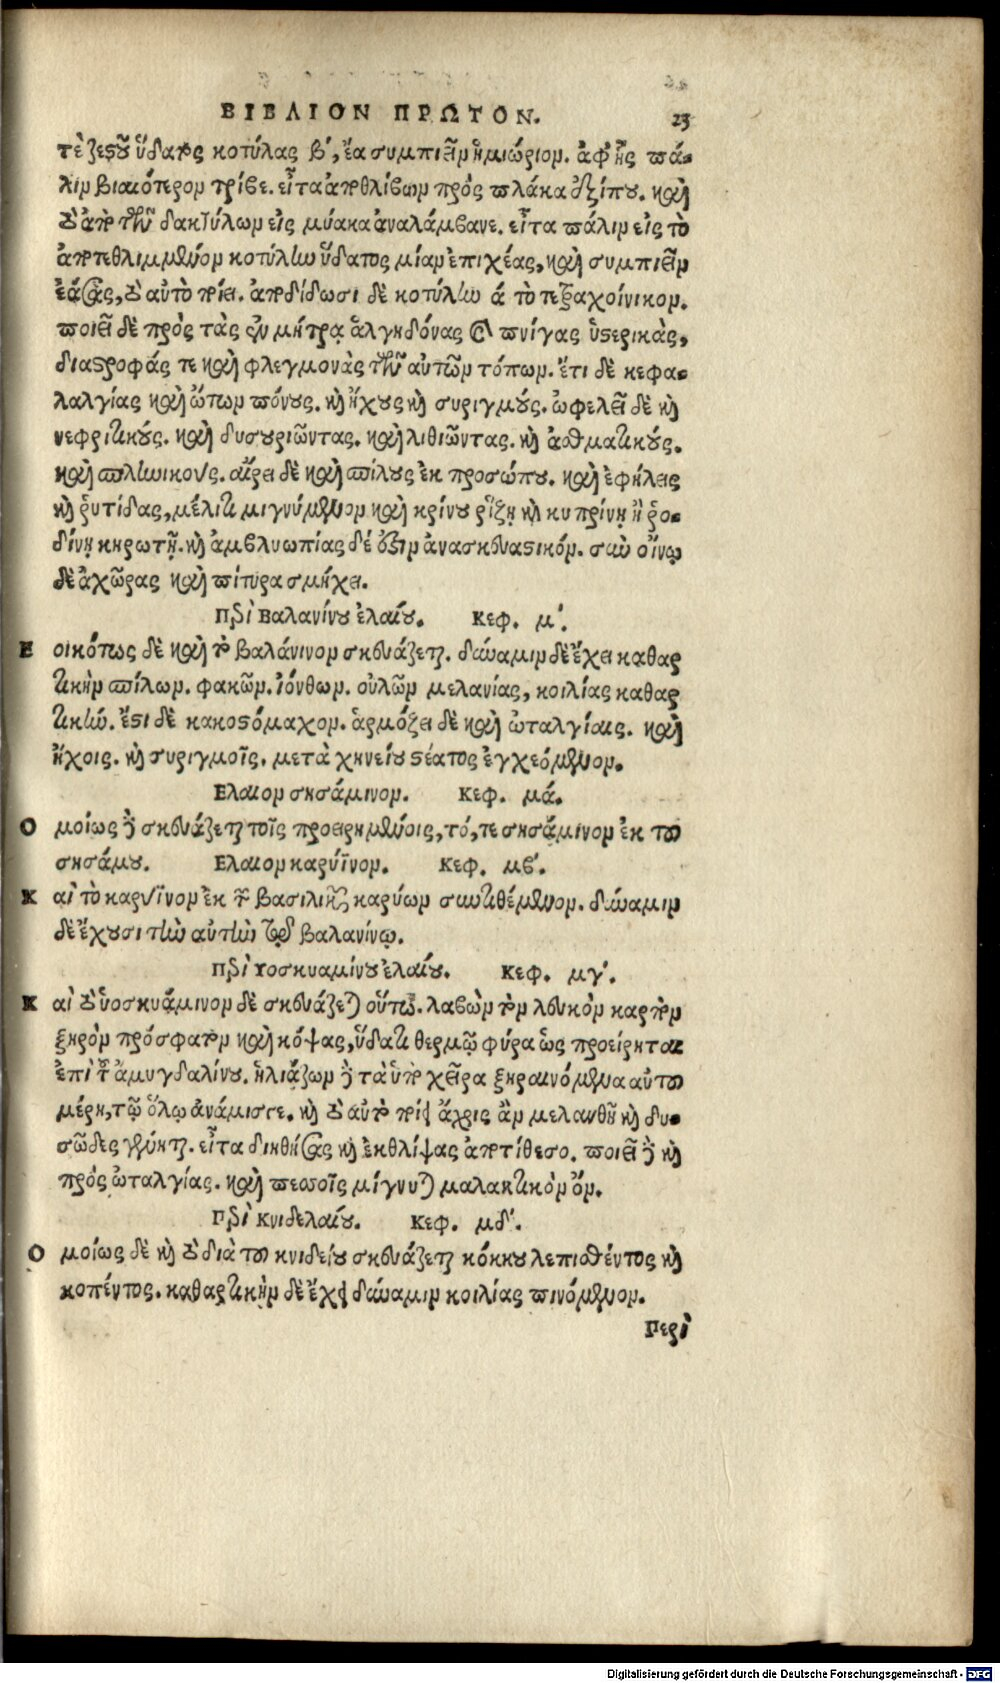 ΒΙΒΛΙΟΝ ΠΡΩΤΟΝ. 23
τὲ ζεστοῦ ὕδατος κοτύλας β΄, ἔα συμπιεῖν ἡμιώριον. ἀφ' ἧς πά-
λιν βιαιότερον τρίβε. εἶτα ἀποθλίβων πρὸς πλάκα ὀξίπου. καὶ
τὸ ἀπὸ τῶν δακτύλων εἰς μύακα ἀναλάμβανε. εἶτα πάλιν εἰς τὸ
ἀποτεθλιμμένον κοτύλην ὕδατος μίαν ἐπιχέας, καὶ συμπιεῖν
ἐάσας, τὸ αὐτὸ ποίει. ἀποδίδωσι δὲ κοτύλην ά τὸ τετραχοίνικον.
ποιεῖ δὲ πρὸς τὰς ἐν μήτρᾳ ἀλγηδόνας καὶ πνίγας ὑστερικὰς,
διαστροφάς τε καὶ φλεγμονὰς τῶν αὐτῶν τόπων. ἔτι δὲ κεφα-
λαλγίας καὶ ὤτων πόνους. καὶ ἤχους καὶ συριγμούς. ὠφελεῖ δὲ καὶ
νεφριτικούς. καὶ δυσουριῶντας. καὶ λιθιῶντας. καὶ ἀσθματικούς.
καὶ σπληνικούς. αἴρει δὲ καὶ σπίλους ἐκ προσώπου. καὶ ἐφήλεις
καὶ ῥυτίδας, μέλιτι μιγνύμενον καὶ κρίνου ῥίζῃ καὶ κυπρίνῃ ἢ ῥο-
δίνῃ κηρωτῇ. καὶ ἀμβλυωπίας δέ ἐστιν ἀνασκευαστικόν. σὺν οἴνῳ
δὲ ἀχῶρας καὶ πίτυρα σμήχει.
Περὶ Βαλανίνου ἐλαίου. Κεφ. μ΄.
Εοικότως δὲ καὶ τὸ βαλάνινον σκευάζεται. δύναμιν δὲ ἔχει καθαρ
τικὴν σπίλων. φακῶν. ἰόνθων. οὐλῶν μελανίας, κοιλίας καθαρ
τικήν. ἔστι δὲ κακοστόμαχον. ἁρμόζει δὲ καὶ ὠταλγίαις. καὶ
ἤχοις. καὶ συριγμοῖς. μετὰ χηνείου στέατος ἐγχεόμενον.
Ελαιον σησάμινον. Κεφ. μά.
Ομοίως δὲ σκευάζεται τοῖς προειρημένοις, τό, τε σησάμινον ἐκ τοῦ
σησάμου. Ελαιον καρύϊνον. Κεφ. μβ΄.
Καὶ τὸ καρύϊνον ἐκ τῶν βασιλικῶν καρύων συντιθέμενον. δύναμιν
δὲ ἔχουσι τὴν αὐτὴν τῷ βαλανίνῳ.
Περὶ Υοσκυαμίνου ἐλαίου. Κεφ. μγ΄.
Καὶ τὸ ὑοσκυάμινον δὲ σκευάζεται οὕτω. λαβὼν τὸν λευκὸν καρπὸν
ξηρὸν πρόσφατον καὶ κόψας, ὕδατι θερμῷ φύρα ὡς προείρηται
ἐπὶ τοῦ ἀμυγδαλίνου. ἡλιάζων δὲ τὰ ὑπὸ χεῖρα ξηραινόμενα αὐτοῦ
μέρη, τῷ ὅλῳ ἀνάμισγε. καὶ τὸ αὐτὸ ποίει ἄχρις ἂν μελανθῇ καὶ δυ-
σῶδες γένηται. εἶτα διηθήσας καὶ ἐκθλίψας ἀποτίθεσο. ποιεῖ δὲ καὶ
πρὸς ὠταλγίας. καὶ πεσσοῖς μίγνυται μαλακτικὸν ὄν.
Περὶ Κνιδελαίου. Κεφ. μδ΄.
Ομοίως δὲ καὶ τὸ διὰ τοῦ κνιδείου σκευάζεται κόκκου λεπισθέντος καὶ
κοπέντος. καθαρτικὴν δὲ ἔχει δύναμιν κοιλίας πινόμενον.
Περὶ
Digitalisierung gefördert durch die Deutsche Forschungsgemeinschaft - DFG